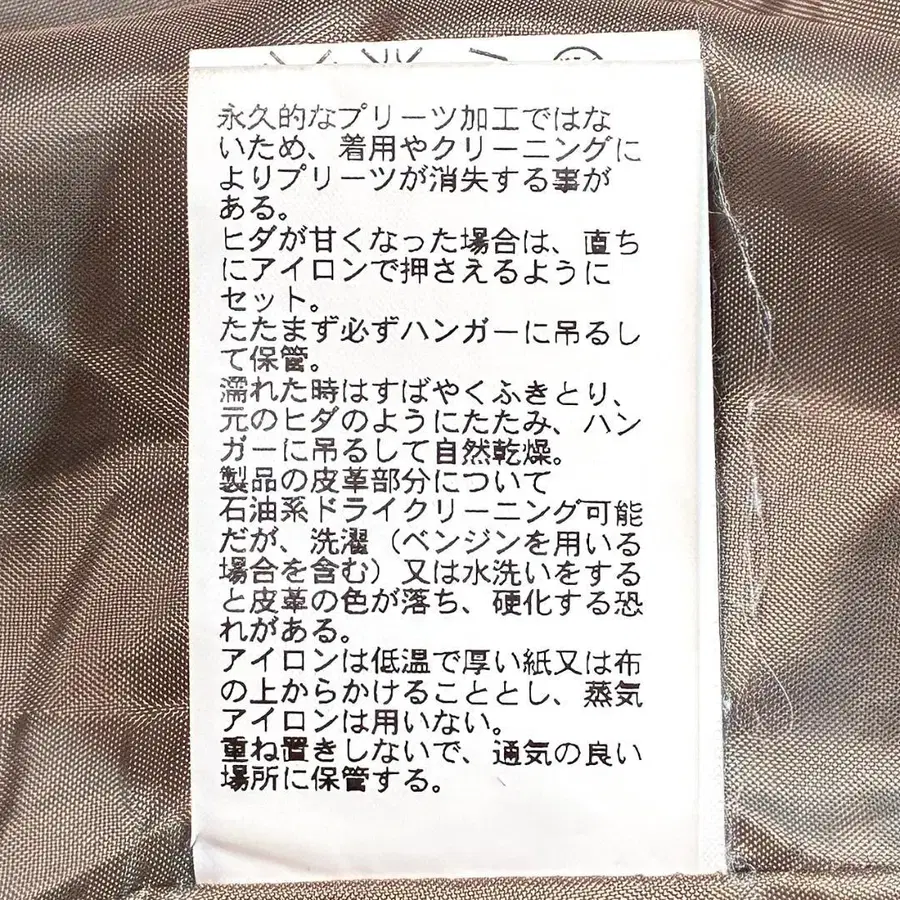 永久的なプリーツ加工ではな
いため、着用やクリーニングに
よりプリーツが消失する事が
ある。
ヒダが甘くなった場合は、直ち
にアイロンで押さえるように
セット。
たたまず必ずハンガーに吊るし
て保管。
濡れた時はすばやくふきとり、
元のヒダのようにたたみ、ハン
ガーに吊るして自然乾燥。
製品の皮革部分について
石油系ドライクリーニング可能
だが、洗濯（ベンジンを用いる
場合を含む）又は水洗いをする
と皮革の色が落ち、硬化する恐
れがある。
アイロンは低温で厚い紙又は布
の上からかけることとし、蒸気
アイロンは用いない。
重ね置きしないで、通気の良い
場所に保管する。